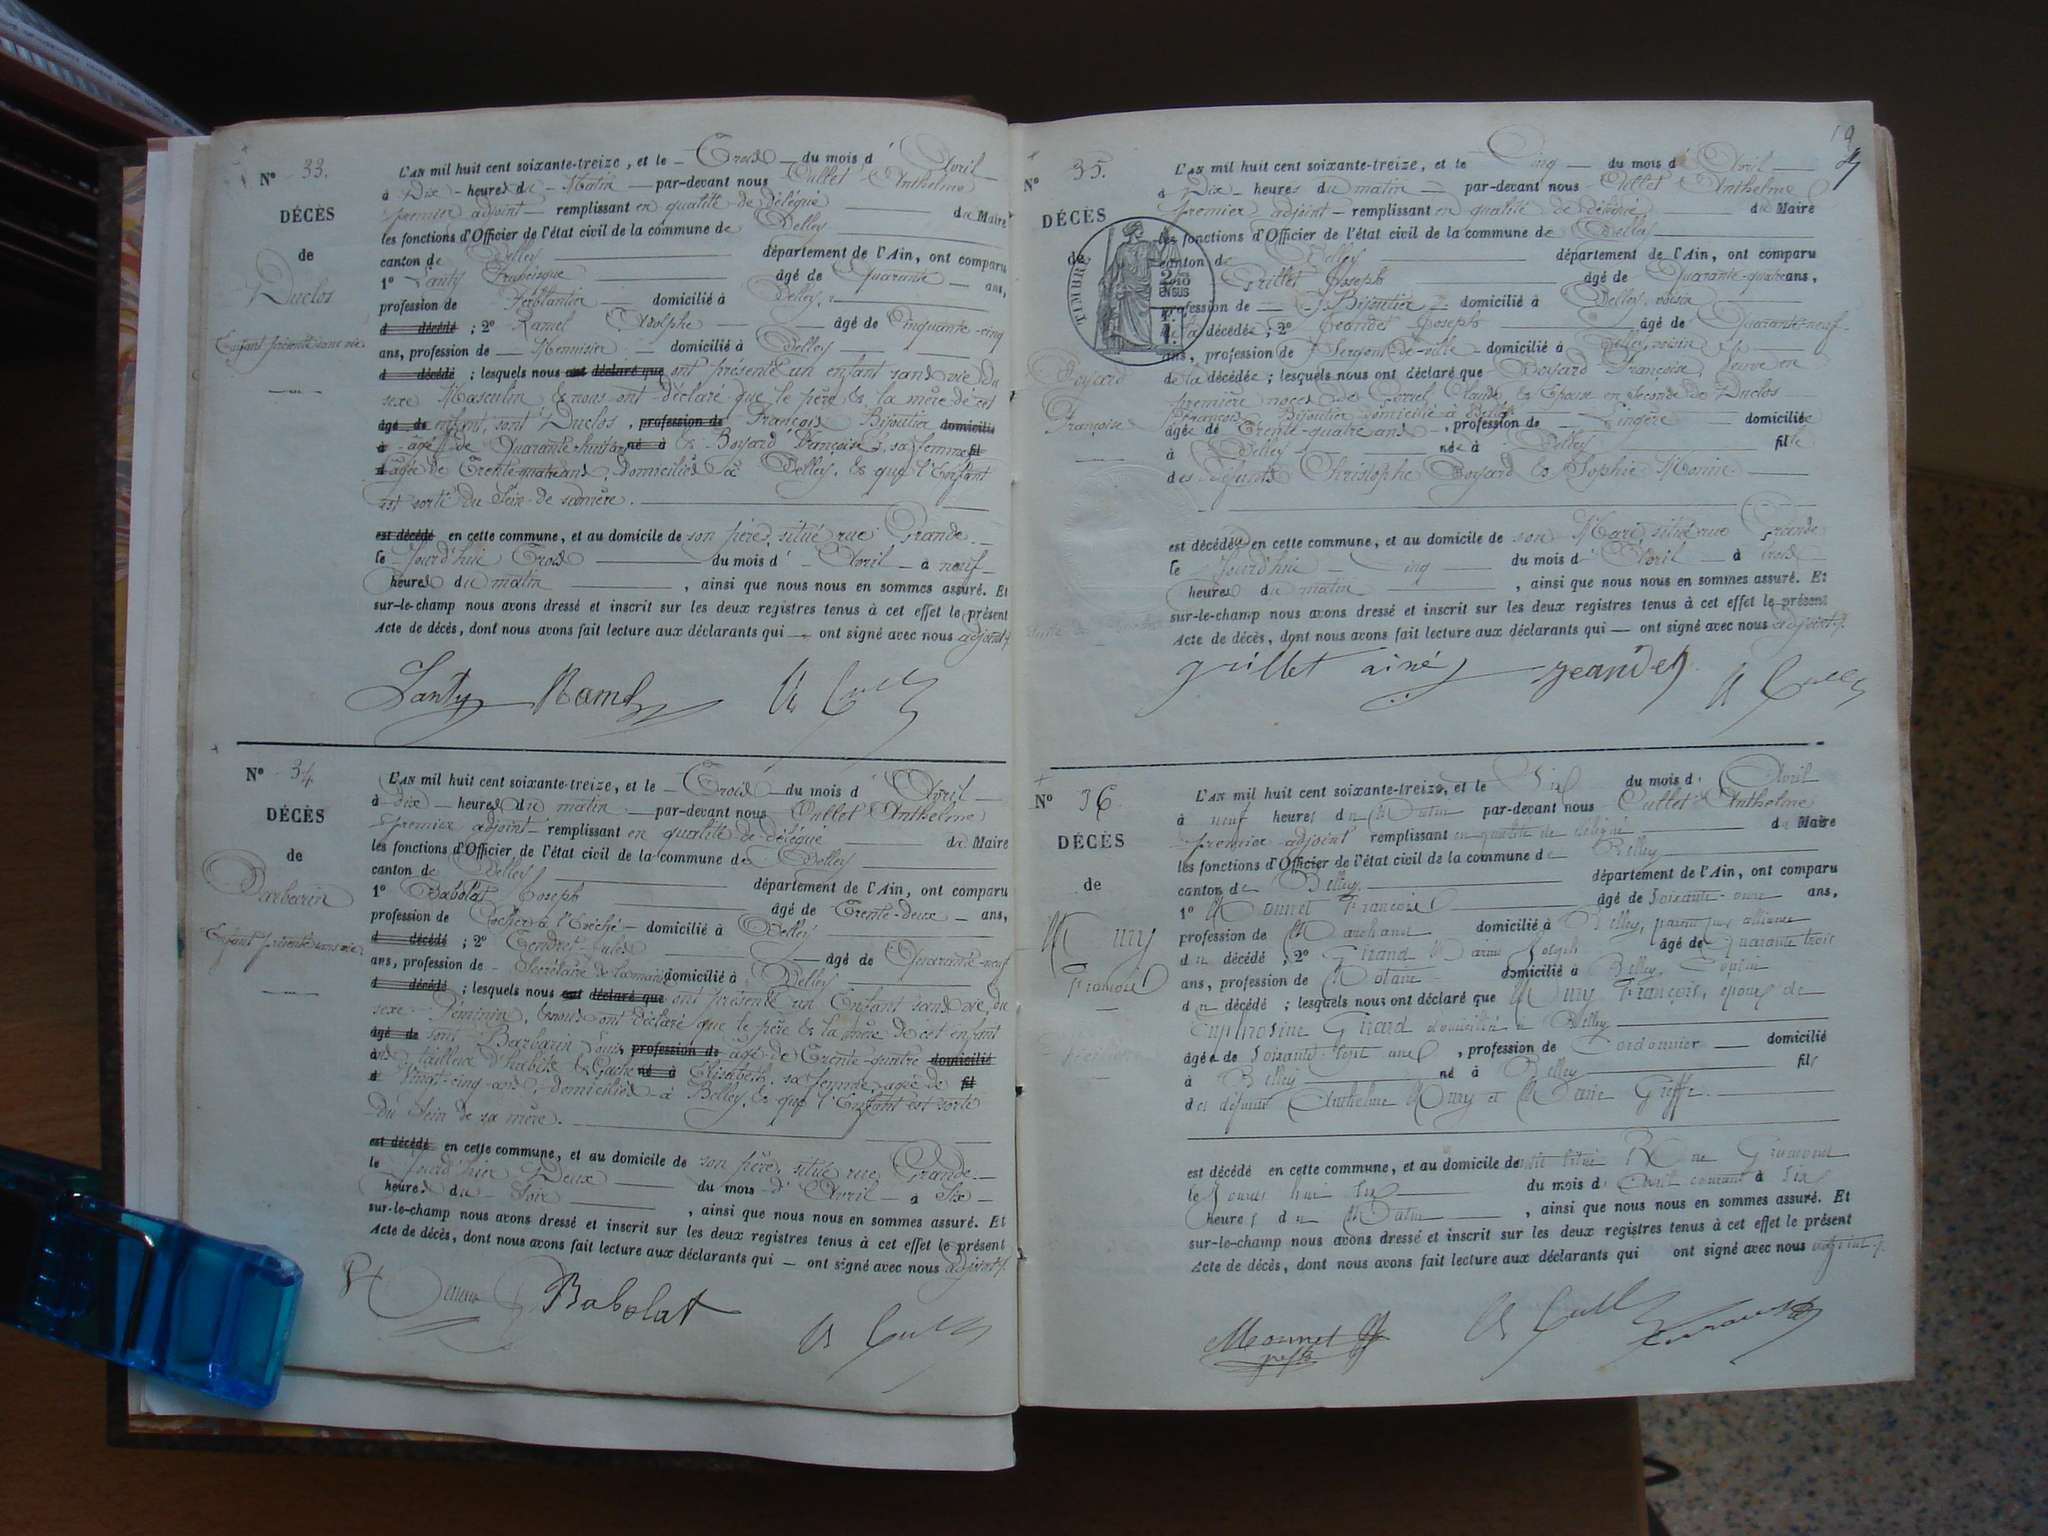 N° 33.
DÉCÈS
de
Duclos
Enfant présenté sans vie
L'AN mil huit cent soixante-treize, et le Trois du mois d'Avril
à Dix heures du Matin par-devant nous Cullet Anthelme
premier adjoint remplissant en qualité de délégué du Maire
les fonctions d'Officier de l'état civil de la commune de Belley
canton de Belley département de l'Ain, ont comparu
1° Lanty Francisque âgé de Quarante ans,
profession de Ferblantier domicilié à Belley
d décédé ; 2° Ramel Adolphe âgé de Cinquante-cinq
ans, profession de Menuisier domicilié à Belley
d décédé ; lesquels nous ont déclaré que ont présenté un enfant sans vie du
sexe Masculin & nous ont déclaré que le père & la mère de cet
âgé de enfant, sont Duclos, profession de François Bijoutier domicilié
à âgé de Quarante-huit ans né à & Boyard Françoise sa femme fil
d âgée de Trente-quatre ans, domiciliés à Belley, & que l'Enfant
est sorti du Sein de sa mère.
est décédé en cette commune, et au domicile de son père, situé rue Grande
le Jourd'hui Trois du mois d'Avril à neuf
heures du matin, ainsi que nous nous en sommes assuré. Et
sur-le-champ nous avons dressé et inscrit sur les deux registres tenus à cet effet le présent
Acte de décès, dont nous avons fait lecture aux déclarants qui ont signé avec nous adjoint.
Lanty Ramel A Cullet
N° 34
DÉCÈS
de
Barbarin
Enfant présenté sans vie
L'AN mil huit cent soixante-treize, et le Trois du mois d'Avril
à dix heures du matin par-devant nous Cullet Anthelme
premier adjoint remplissant en qualité de délégué du Maire
les fonctions d'Officier de l'état civil de la commune de Belley
canton de Belley département de l'Ain, ont comparu
1° Babolat Joseph âgé de Trente-deux ans,
profession de Cocher à l'Évêché domicilié à Belley
d décédé ; 2° Tendret Jules âgé de Quarante-neuf
ans, profession de Secrétaire de la mairie domicilié à Belley
d décédé ; lesquels nous ont déclaré que ont présenté un Enfant sans vie du
sexe Féminin, & nous ont déclaré que le père & la mère de cet enfant
âgé de sont Barbarin Louis, profession de âgé de Trente-quatre domicilié
à ans tailleur d'habits & né à Elisabeth, sa femme, agée de fil
d Vingt-cinq ans, domiciliés à Belley, & que l'Enfant est sorti
du Sein de sa mère.
est décédé en cette commune, et au domicile de son père, situé rue Grande
le Jourd'hier Deux du mois d'Avril à Six
heures du Soir, ainsi que nous nous en sommes assuré. Et
sur-le-champ nous avons dressé et inscrit sur les deux registres tenus à cet effet le présent
Acte de décès, dont nous avons fait lecture aux déclarants qui ont signé avec nous adjoint.
Babolat A Cullet
19
N° 35.
DÉCÈS
de
TIMBRE
Boyard
Françoise
L'AN mil huit cent soixante-treize, et le Cinq du mois d'Avril
à Dix heures du matin par-devant nous Cullet Anthelme
premier adjoint remplissant en qualité de délégué du Maire
les fonctions d'Officier de l'état civil de la commune de Belley
canton de Belley département de l'Ain, ont comparu
1° Grillet Joseph âgé de Quarante-quatre ans,
profession de Bijoutier domicilié à Belley, voisin
de la décédée ; 2° Jeandet Joseph âgé de Quarante-neuf
ans, profession de Sergent-de-ville domicilié à Belley, voisin
de la décédée ; lesquels nous ont déclaré que Boyard Françoise, Veuve en
première noces de Claude, & Epouse en Seconde de Duclos
François Bijoutier domicilié à Belley
âgée de Trente-quatre ans, profession de Lingère domiciliée
à Belley née à Belley fille
des défunts Christophe Boyard & Sophie Morin
est décédée en cette commune, et au domicile de son Mari, situé rue Grande
le Jourd'hui Cinq du mois d'Avril à trois
heures du matin, ainsi que nous nous en sommes assuré. Et
sur-le-champ nous avons dressé et inscrit sur les deux registres tenus à cet effet le présent
Acte de décès, dont nous avons fait lecture aux déclarants qui ont signé avec nous adjoint.
grillet ainé jeandet A Cullet
N° 36
DÉCÈS
de
Mury
François
L'AN mil huit cent soixante-treize, et le Six du mois d'Avril
à neuf heures du Matin par-devant nous Cullet Anthelme
premier adjoint remplissant en qualité de délégué du Maire
les fonctions d'Officier de l'état civil de la commune de Belley
canton de Belley département de l'Ain, ont comparu
1° Monnet François âgé de Soixante-onze ans,
profession de Marchand domicilié à Belley, parent par alliance
du décédé ; 2° Girand Marin Joseph âgé de quarante trois
ans, profession de Notaire domicilié à Belley, Cousin
du décédé ; lesquels nous ont déclaré que Mury François, époux de
Euphrosine Girard domicilié à Belley
âgé de Soixante-sept ans, profession de Cordonnier domicilié
à Belley né à Belley fils
des défunts Anthelme Mury et Marie Greffe.
est décédé en cette commune, et au domicile de situé Rue
le Jourd'hui Six du mois d'Avril courant à Six
heures du Matin, ainsi que nous nous en sommes assuré. Et
sur-le-champ nous avons dressé et inscrit sur les deux registres tenus à cet effet le présent
Acte de décès, dont nous avons fait lecture aux déclarants qui ont signé avec nous adjoint.
Monnet A Cullet